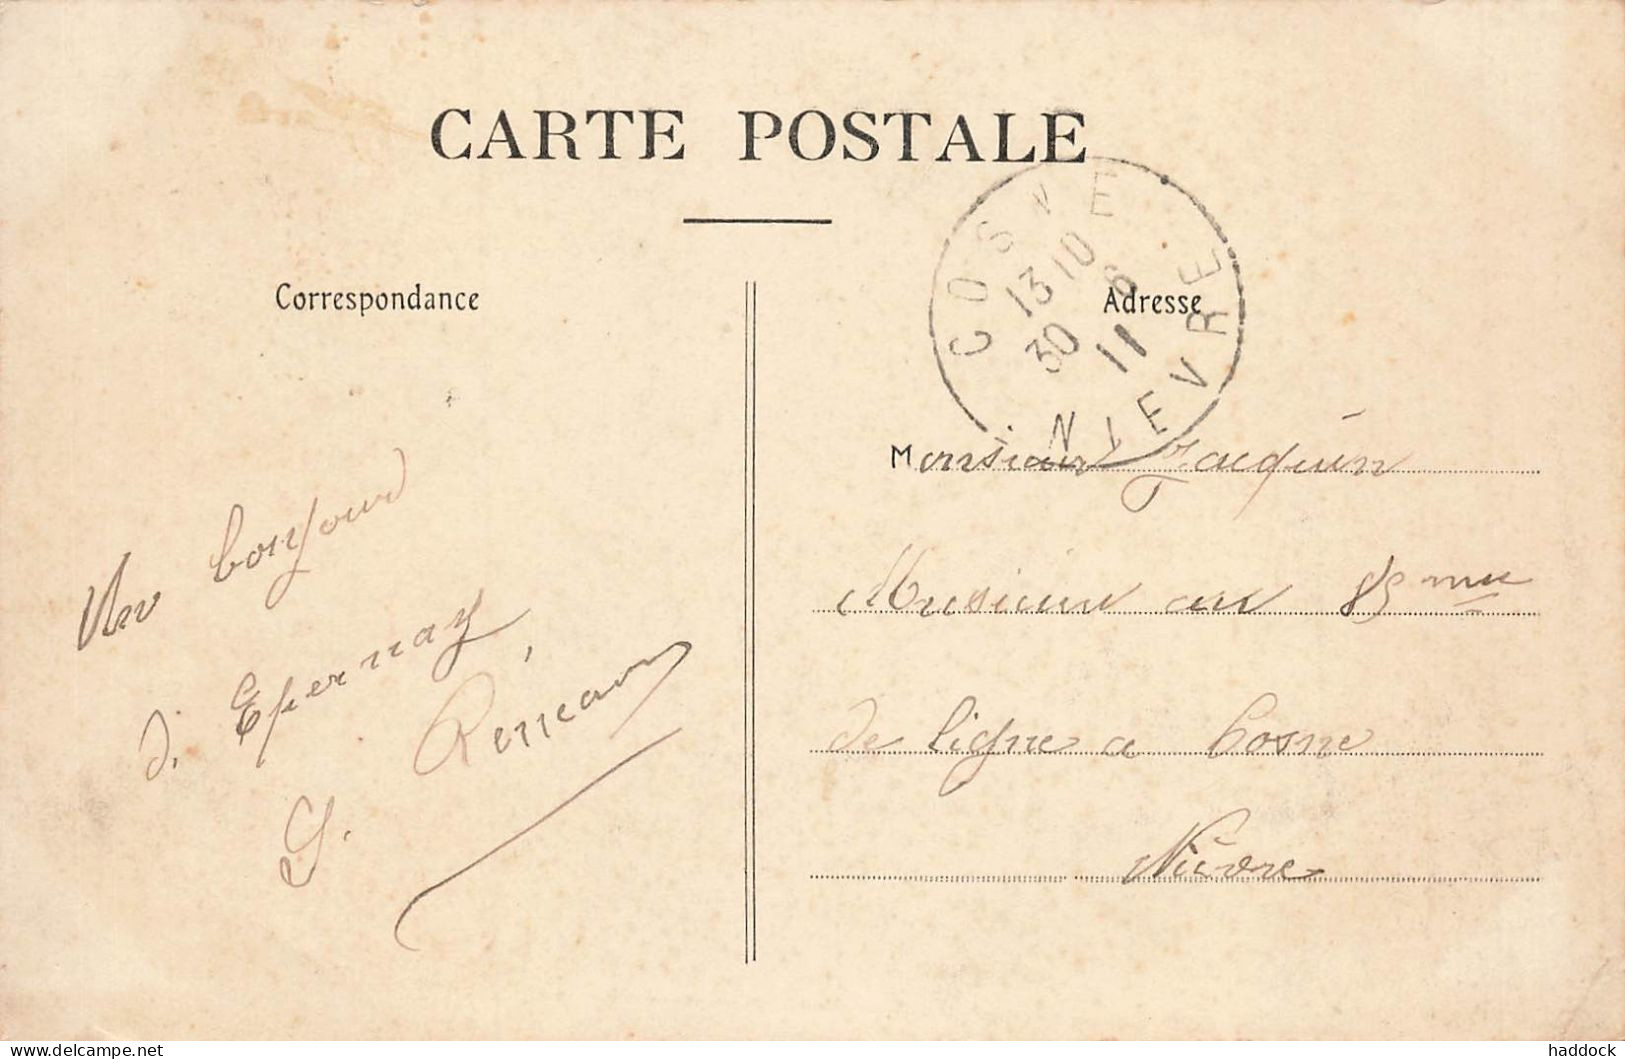 CARTE POSTALE
COSNE
13 10
30 6
11
NIEVRE
Correspondance
Adresse
bonjour
d'Epernay
G.
Monsieur Jacquin
Musicien au 85 me
de ligne a Cosne
Nièvre
www.delcampe.net
haddock